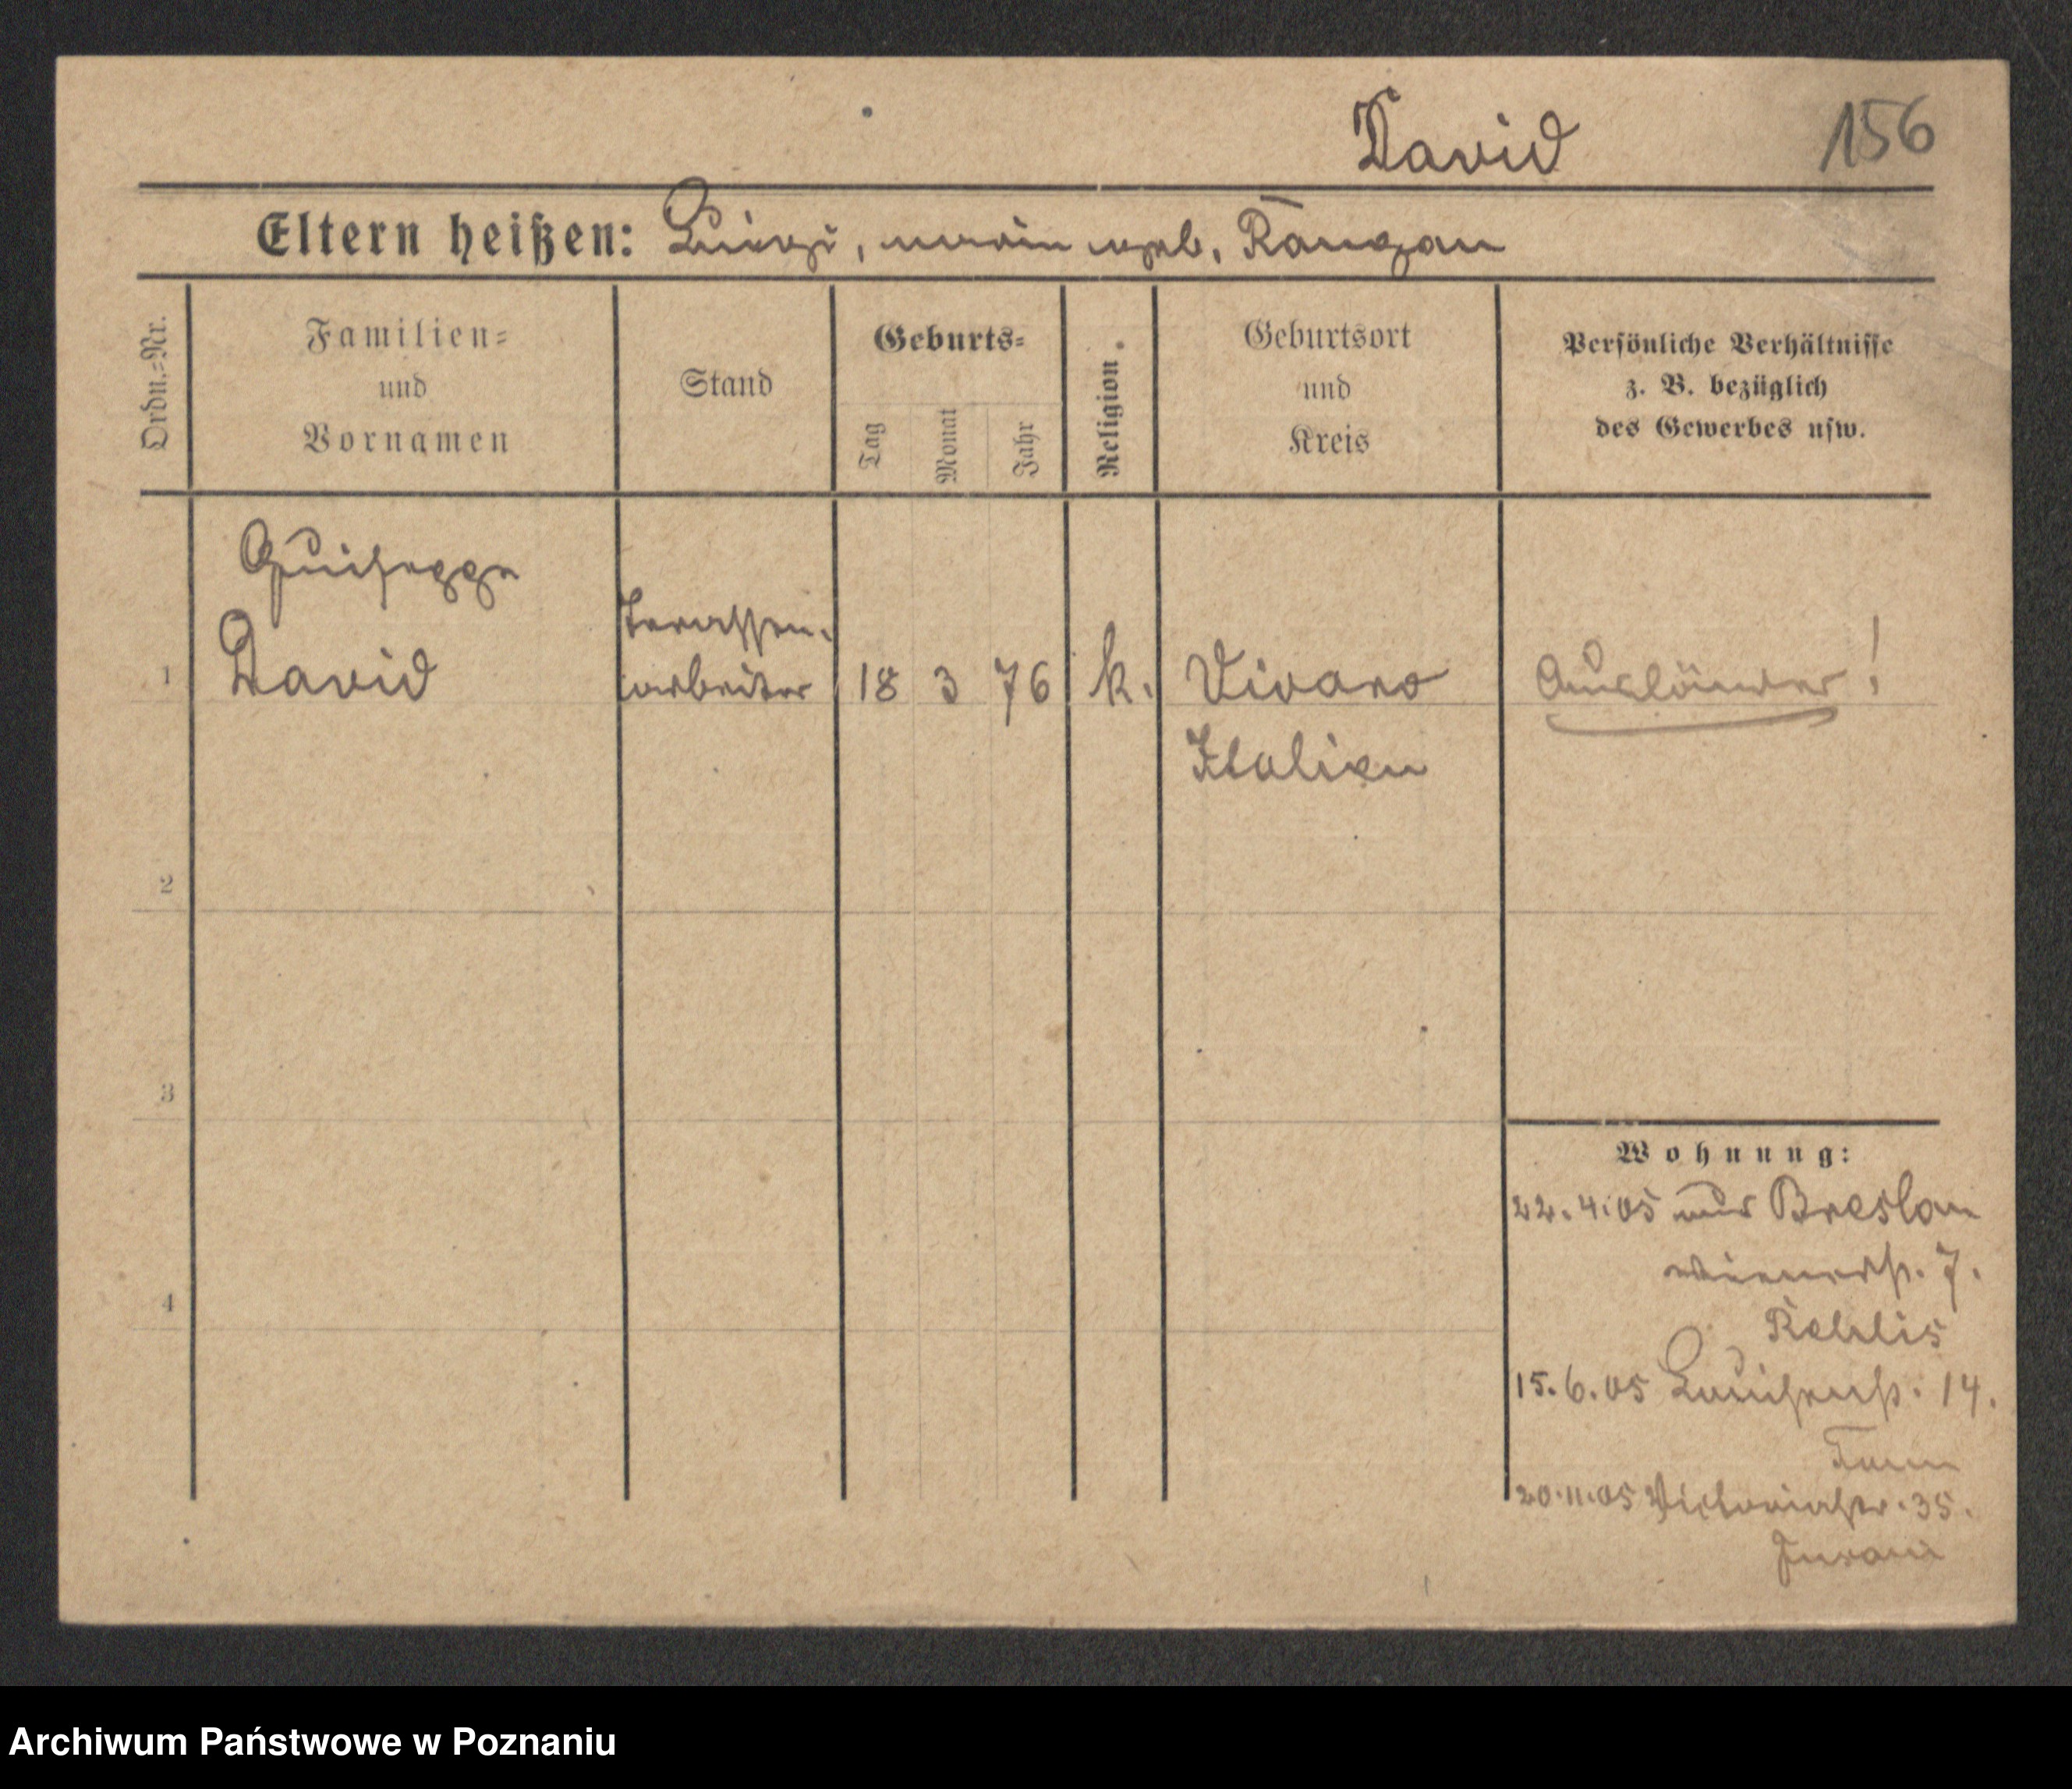 David 156
Eltern heißen: Luigi, Maria geb. Rangan
Ordn.=Nr.
Familien=
und
Vornamen
Stand
Geburts=
Tag
Monat
Jahr
Religion.
Geburtsort
und
Kreis
Persönliche Verhältnisse
z. B. bezüglich
des Gewerbes usw.
Guiseppe
1 David Terassen-
arbeiter 18 3 76 k. Vivaro Ausländer!
Italien
2
3
4
Wohnung:
22.4.05 aus Breslau
Wienerstr. 7.
15.6.05 Louisenstr. 14.
20.11.05 Victoriastr. 35.
Archiwum Państwowe w Poznaniu